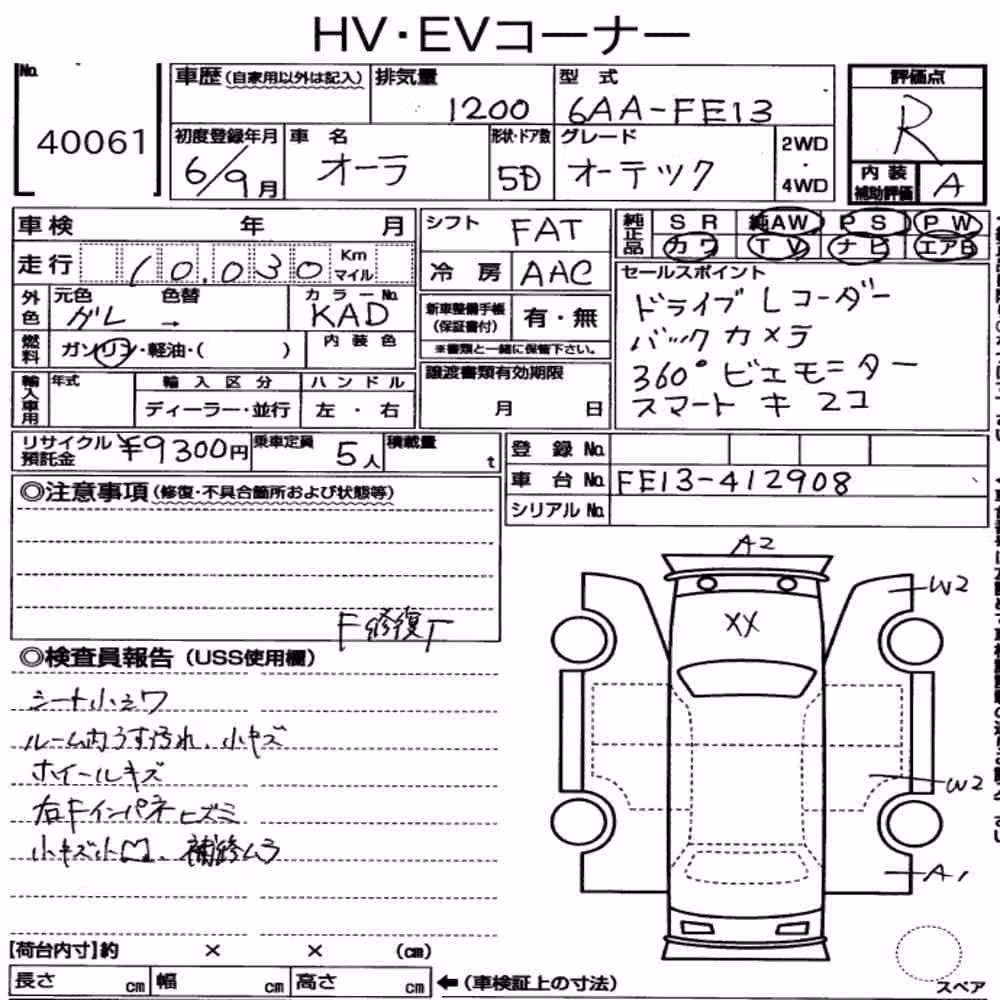 HV・EVコーナー
No.
40061
車歴(自家用以外は記入)
排気量
1200
型 式
6AA-FE13
評価点
R
内装補助評価
A
初度登録年月
6/9月
車 名
オーラ
形状・ドア数
5D
グレード
オーテック
2WD
・
4WD
車検 年 月
走行 10,030 Km マイル
外色
元色 色替
グレ →
カラーNo.
KAD
燃料
ガソリン・軽油・( )
内装色
輸入車用
年式
輸入区分
ディーラー・並行
ハンドル
左・右
シフト
FAT
冷房
AAC
新車整備手帳
(保証書付)
有・無
※書類と一緒に保管下さい。
譲渡書類有効期限
月 日
純正品
SR 純AW PS PW
カワ TV ナビ エアB
セールスポイント
ドライブレコーダー
バックカメラ
360°ビューモニター
スマートキー2コ
リサイクル預託金
¥9300円
乗車定員
5人
積載量
t
登録No.
車台No.
FE13-412908
シリアルNo.
◎注意事項(修復・不具合箇所および状態等)
F修復丁
◎検査員報告(USS使用欄)
シート小シワ
ルーム内うす汚れ、小キズ
ホイールキズ
右Fインパネヒズミ
小キズ小凹、補修ムラ
A2
XX
W2
W2
A1
【荷台内寸】約 × × (cm)
長さ cm 幅 cm 高さ cm
←(車検証上の寸法)
スペア